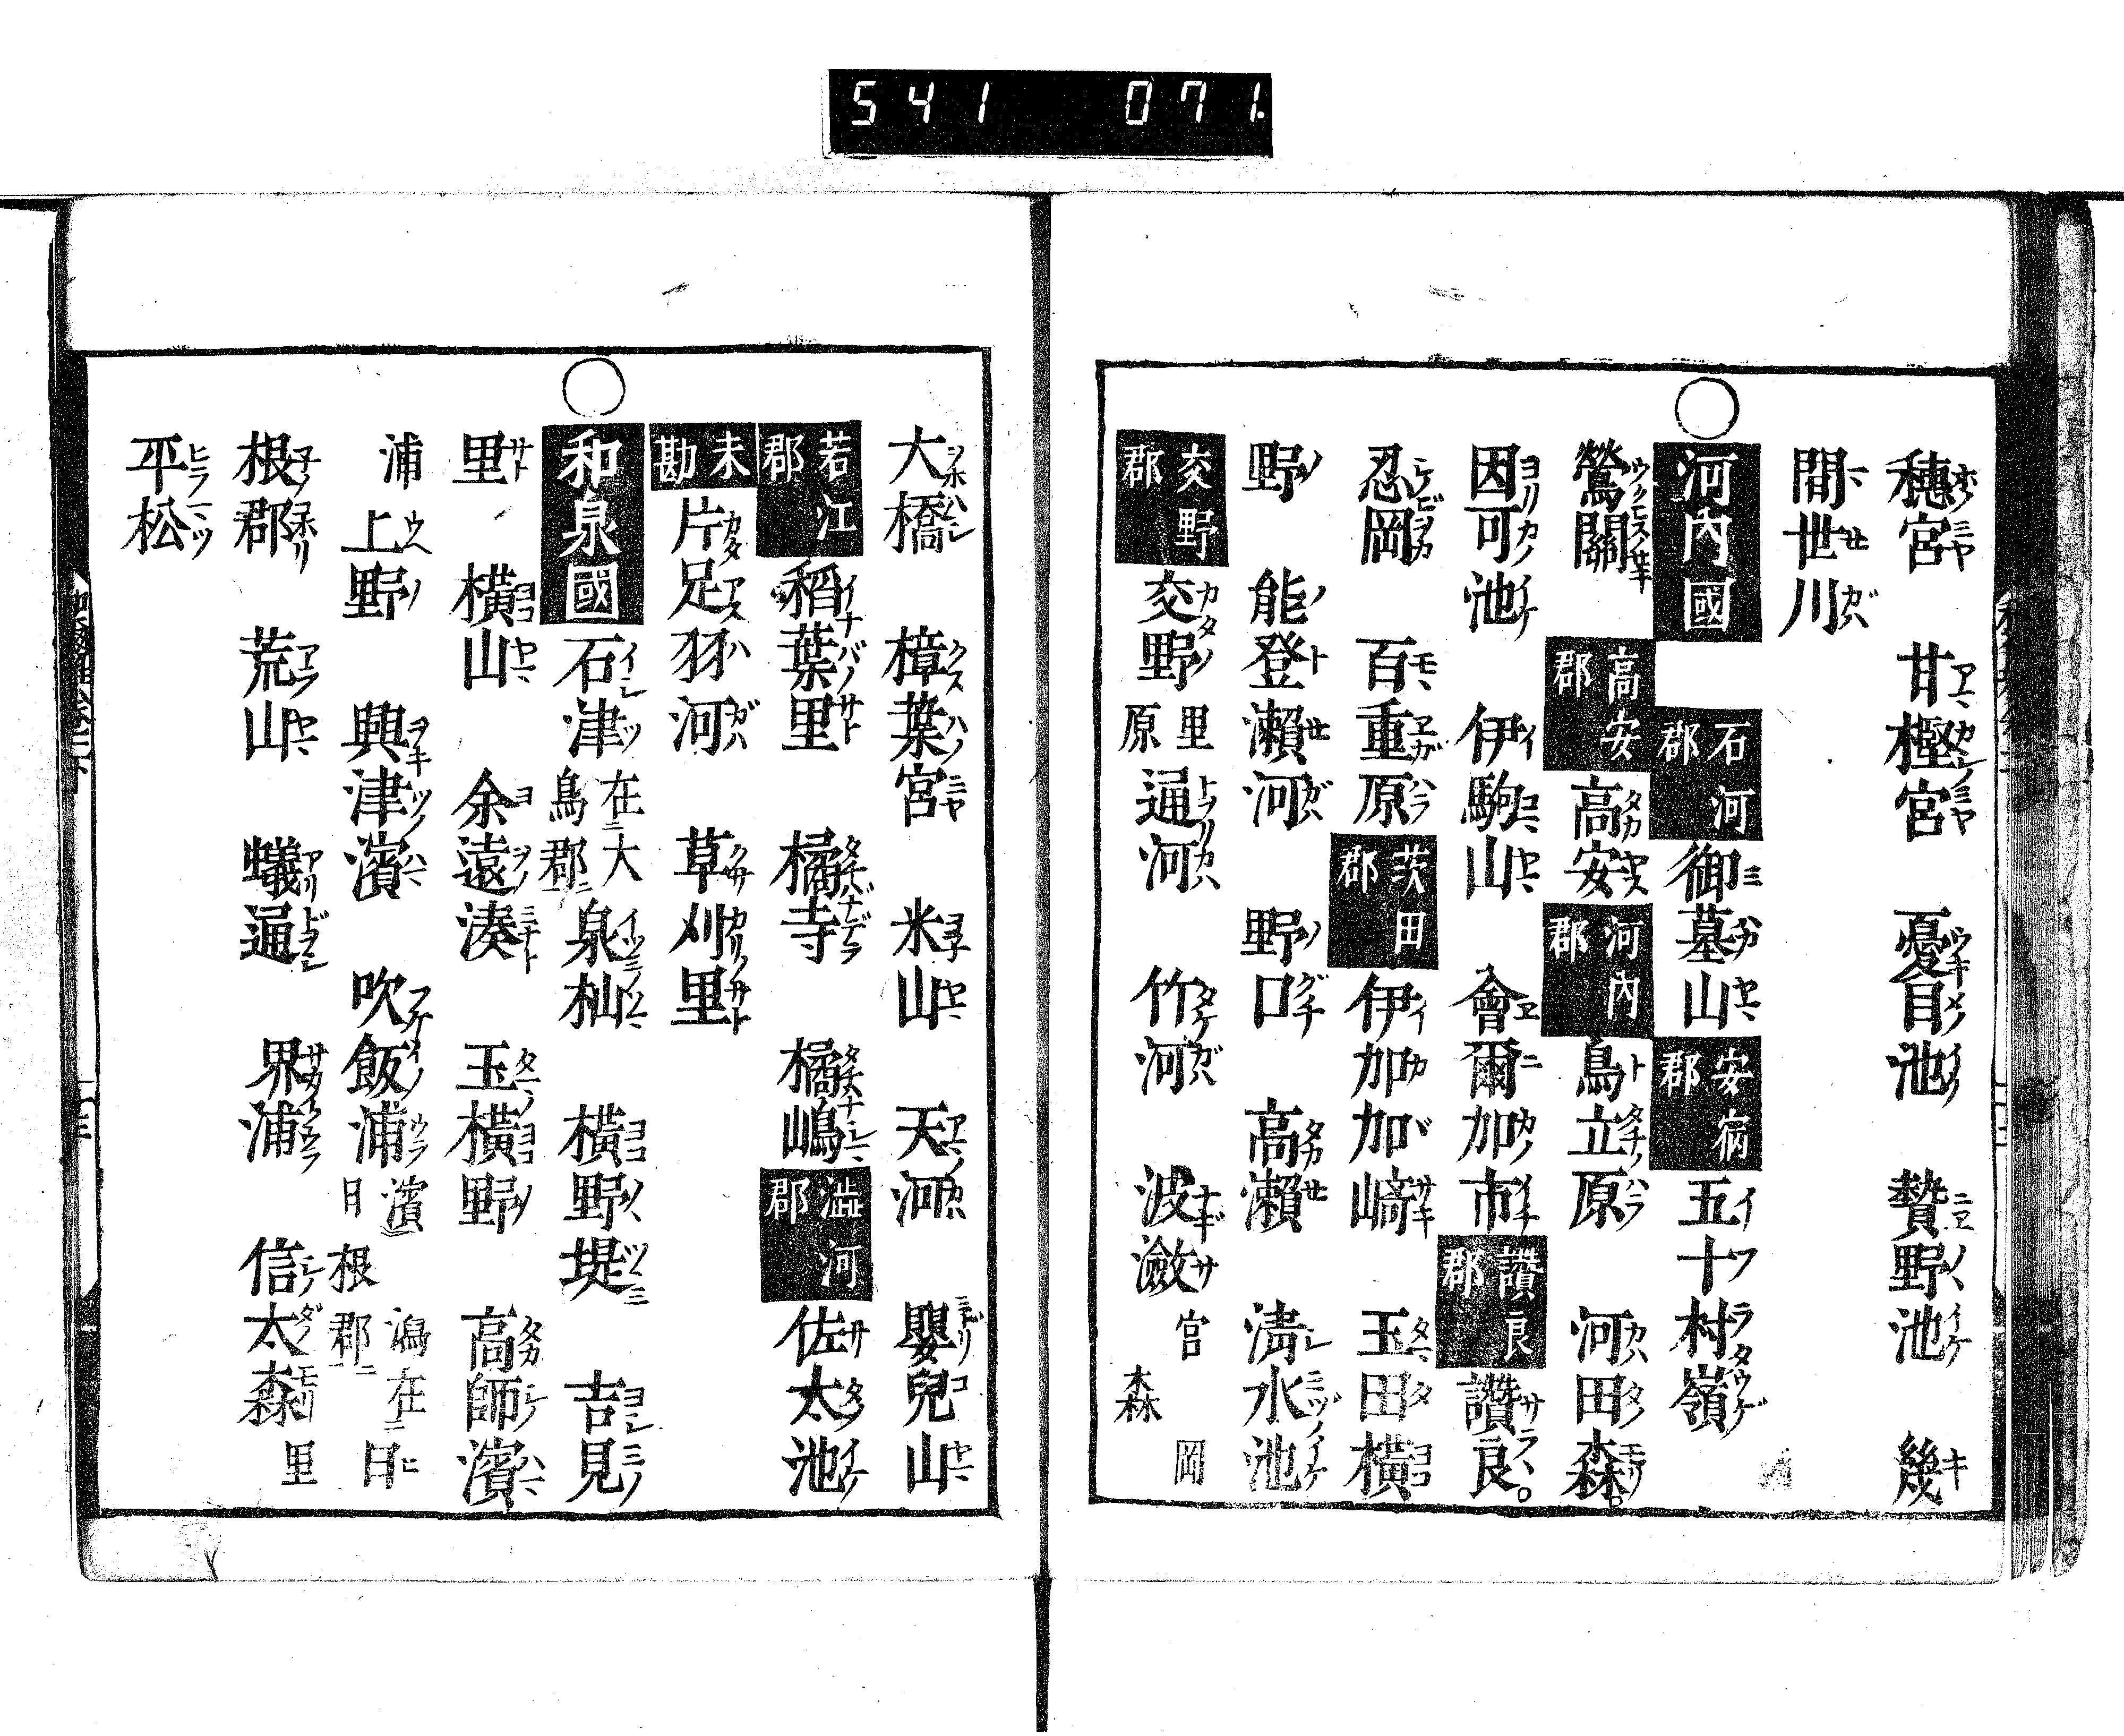 541 071.
穗宮 甘樫宮 憂目池 贄野池 幾
間世川
河內國 石河郡 御墓山 安宿郡 五十村嶺
鶯關 高安郡 高安 河內郡 鳥立原 河田森。
因可池 伊駒山 會爾加市 讚良郡 讚良。
忍岡 百重原 茨田郡 伊加加﨑 玉田橫
野 能登瀨河 野口 高瀨 淸水池
交野郡 交野 里 原 通河 竹河 波瀲 宮 森 岡
大橋 樟葉宮 米山 天河 嬰兒山
若江郡 稻葉里 橘寺 橘嶋 澁河郡 佐太池
未勘 片足羽河 草刈里
和泉國 石津 在大鳥郡 泉杣 橫野堤 吉見
里 橫山 余遠湊 玉橫野 高師濱
浦 上野 興津濱 吹飯浦 濱 嶋在日根郡 日
根郡 荒山 蟻通 界浦 信太森 里
平松